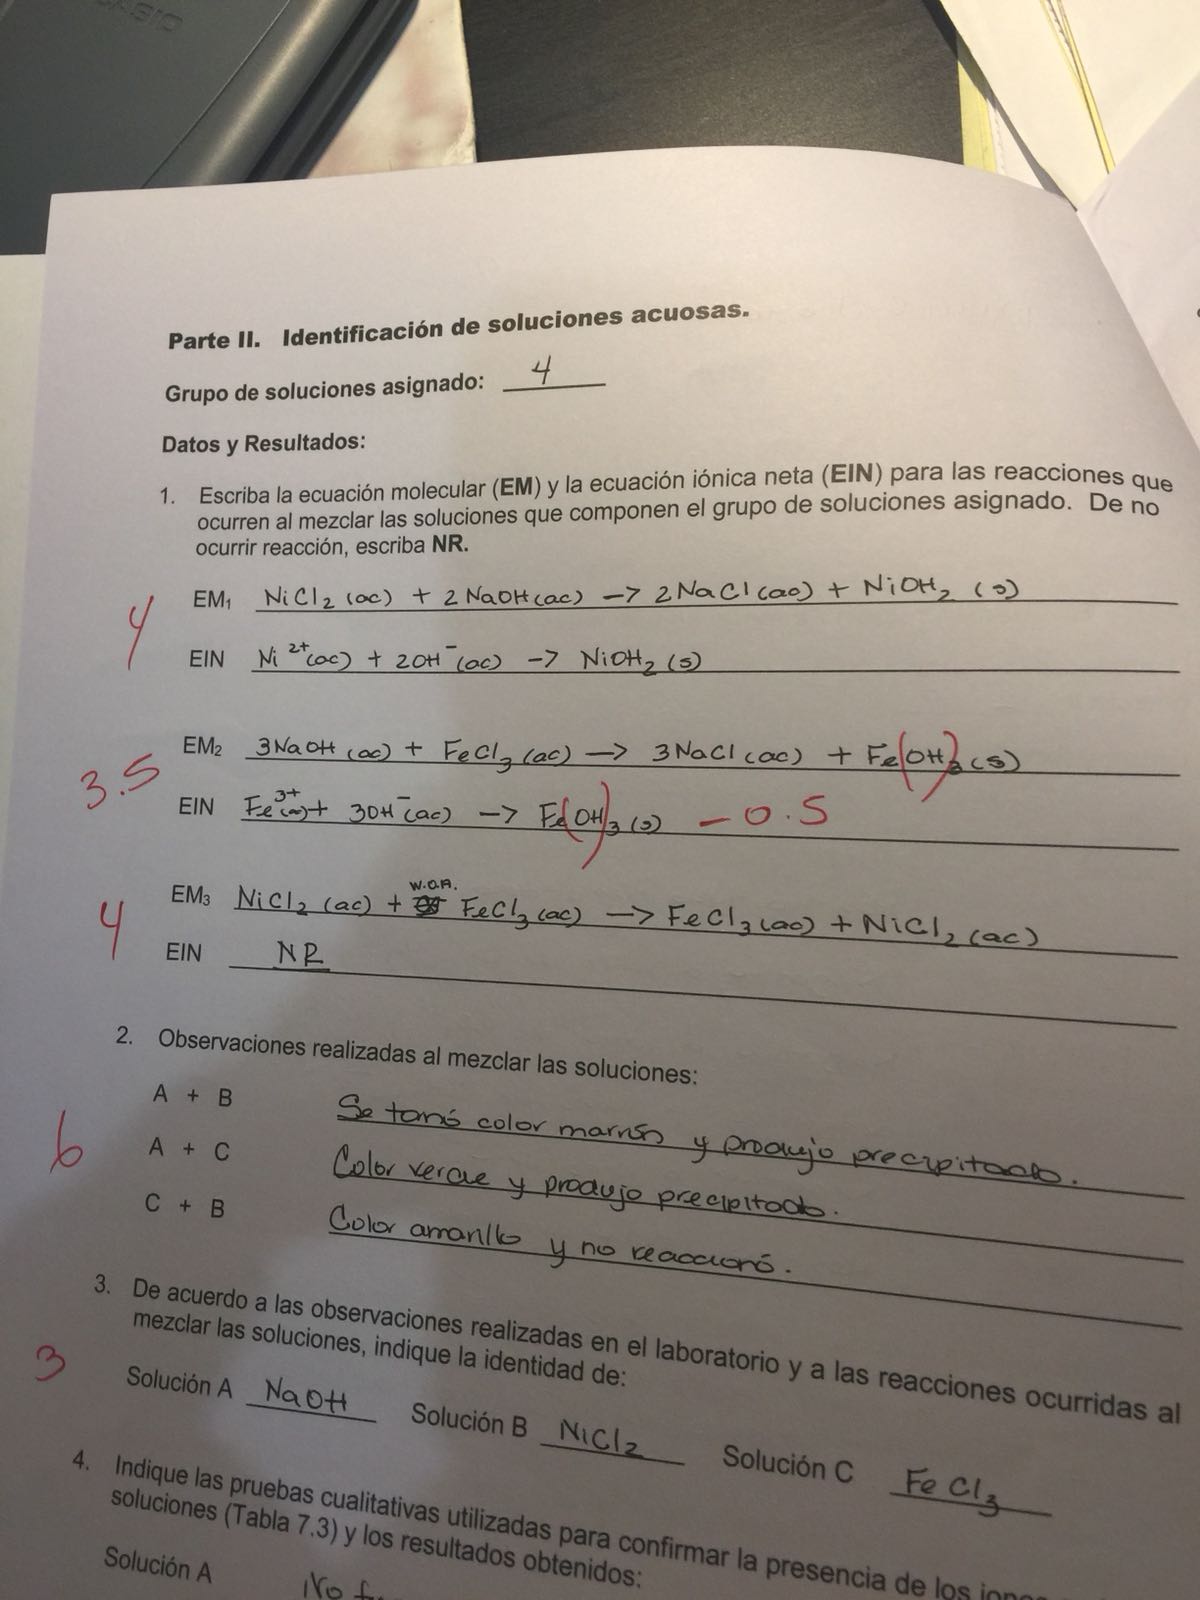 CASIO
Parte II. Identificación de soluciones acuosas.
Grupo de soluciones asignado: 4
Datos y Resultados:
1. Escriba la ecuación molecular (EM) y la ecuación iónica neta (EIN) para las reacciones que
ocurren al mezclar las soluciones que componen el grupo de soluciones asignado. De no
ocurrir reacción, escriba NR.
4
EM₁ NiCl₂ (ac) + 2 NaOH (ac) -> 2 NaCl (ac) + NiOH₂ (s)
EIN Ni²⁺(ac) + 2OH⁻(ac) -> NiOH₂ (s)
3.5
EM₂ 3NaOH (ac) + FeCl₃ (ac) -> 3NaCl (ac) + Fe(OH)₃ (s)
EIN Fe³⁺(ac) + 3OH⁻(ac) -> Fe(OH)₃ (s) - 0.5
4
W.O.A.
EM₃ NiCl₂ (ac) + FeCl₃ (ac) -> FeCl₃ (ac) + NiCl₂ (ac)
EIN NR
2. Observaciones realizadas al mezclar las soluciones:
6
A + B Se tornó color marrón y produjo precipitado.
A + C Color verde y produjo precipitado.
C + B Color amarillo y no reaccionó.
3. De acuerdo a las observaciones realizadas en el laboratorio y a las reacciones ocurridas al
mezclar las soluciones, indique la identidad de:
3
Solución A NaOH Solución B NiCl₂ Solución C FeCl₃
4. Indique las pruebas cualitativas utilizadas para confirmar la presencia de los
soluciones (Tabla 7.3) y los resultados obtenidos:
Solución A No